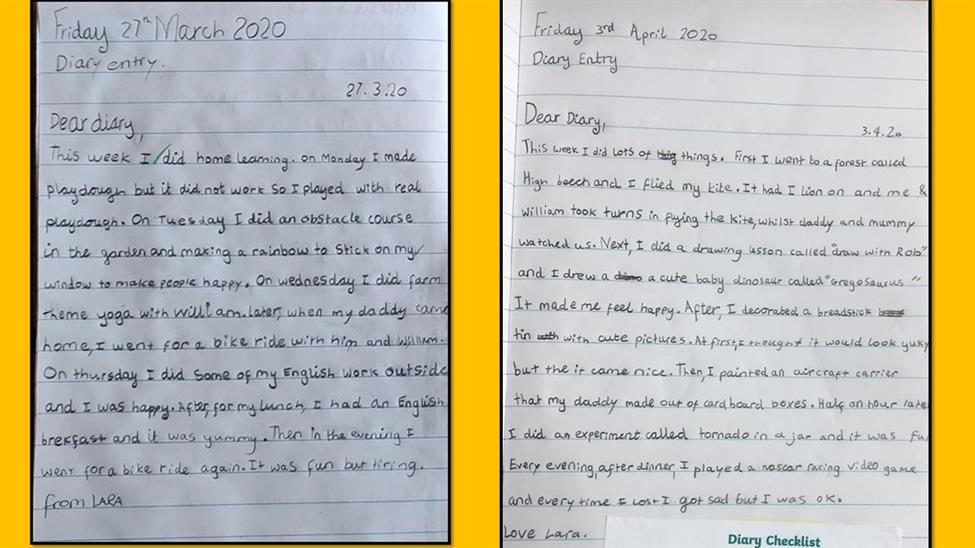 Friday 27th March 2020
Diary entry.
27.3.20
Dear diary,
This week I did home learning. On Monday I made
playdough but it did not work so I played with real
playdough. On Tuesday I did an obstacle course
in the garden and making a rainbow to stick on my
window to make people happy. On wednesday I did farm
theme yoga with William. later, when my daddy came
home, I went for a bike ride with him and William.
On thursday I did some of my English work outside
and I was happy. After, for my lunch, I had an English
brekfast and it was yummy. Then in the evening I
went for a bike ride again. It was fun but tiring.
from LARA
Friday 3rd April 2020
Diary Entry
Dear Diary,
3.4.20
This week I did lots of things. First I went to a forest called
High beech and I flied my kite. It had I lion on and me &
William took turns in flying the kite, whilst daddy and mummy
watched us. Next, I did a drawing lesson called "draw with Rob"
and I drew a a cute baby dinosaur called "Gregosaurus"
It made me feel happy. After, I decorabed a breadstick
tin with cute pictures. At first, I thought it would look yuky
but the it came nice. Then, I painted an aircraft carrier
that my daddy made out of cardboard boxes. Half an hour late
I did an experiment called tornado in a jar and it was fu
Every evening, after dinner, I played a nascar racing video game
and every time I lost I got sad but I was ok.
Love Lara.
Diary Checklist